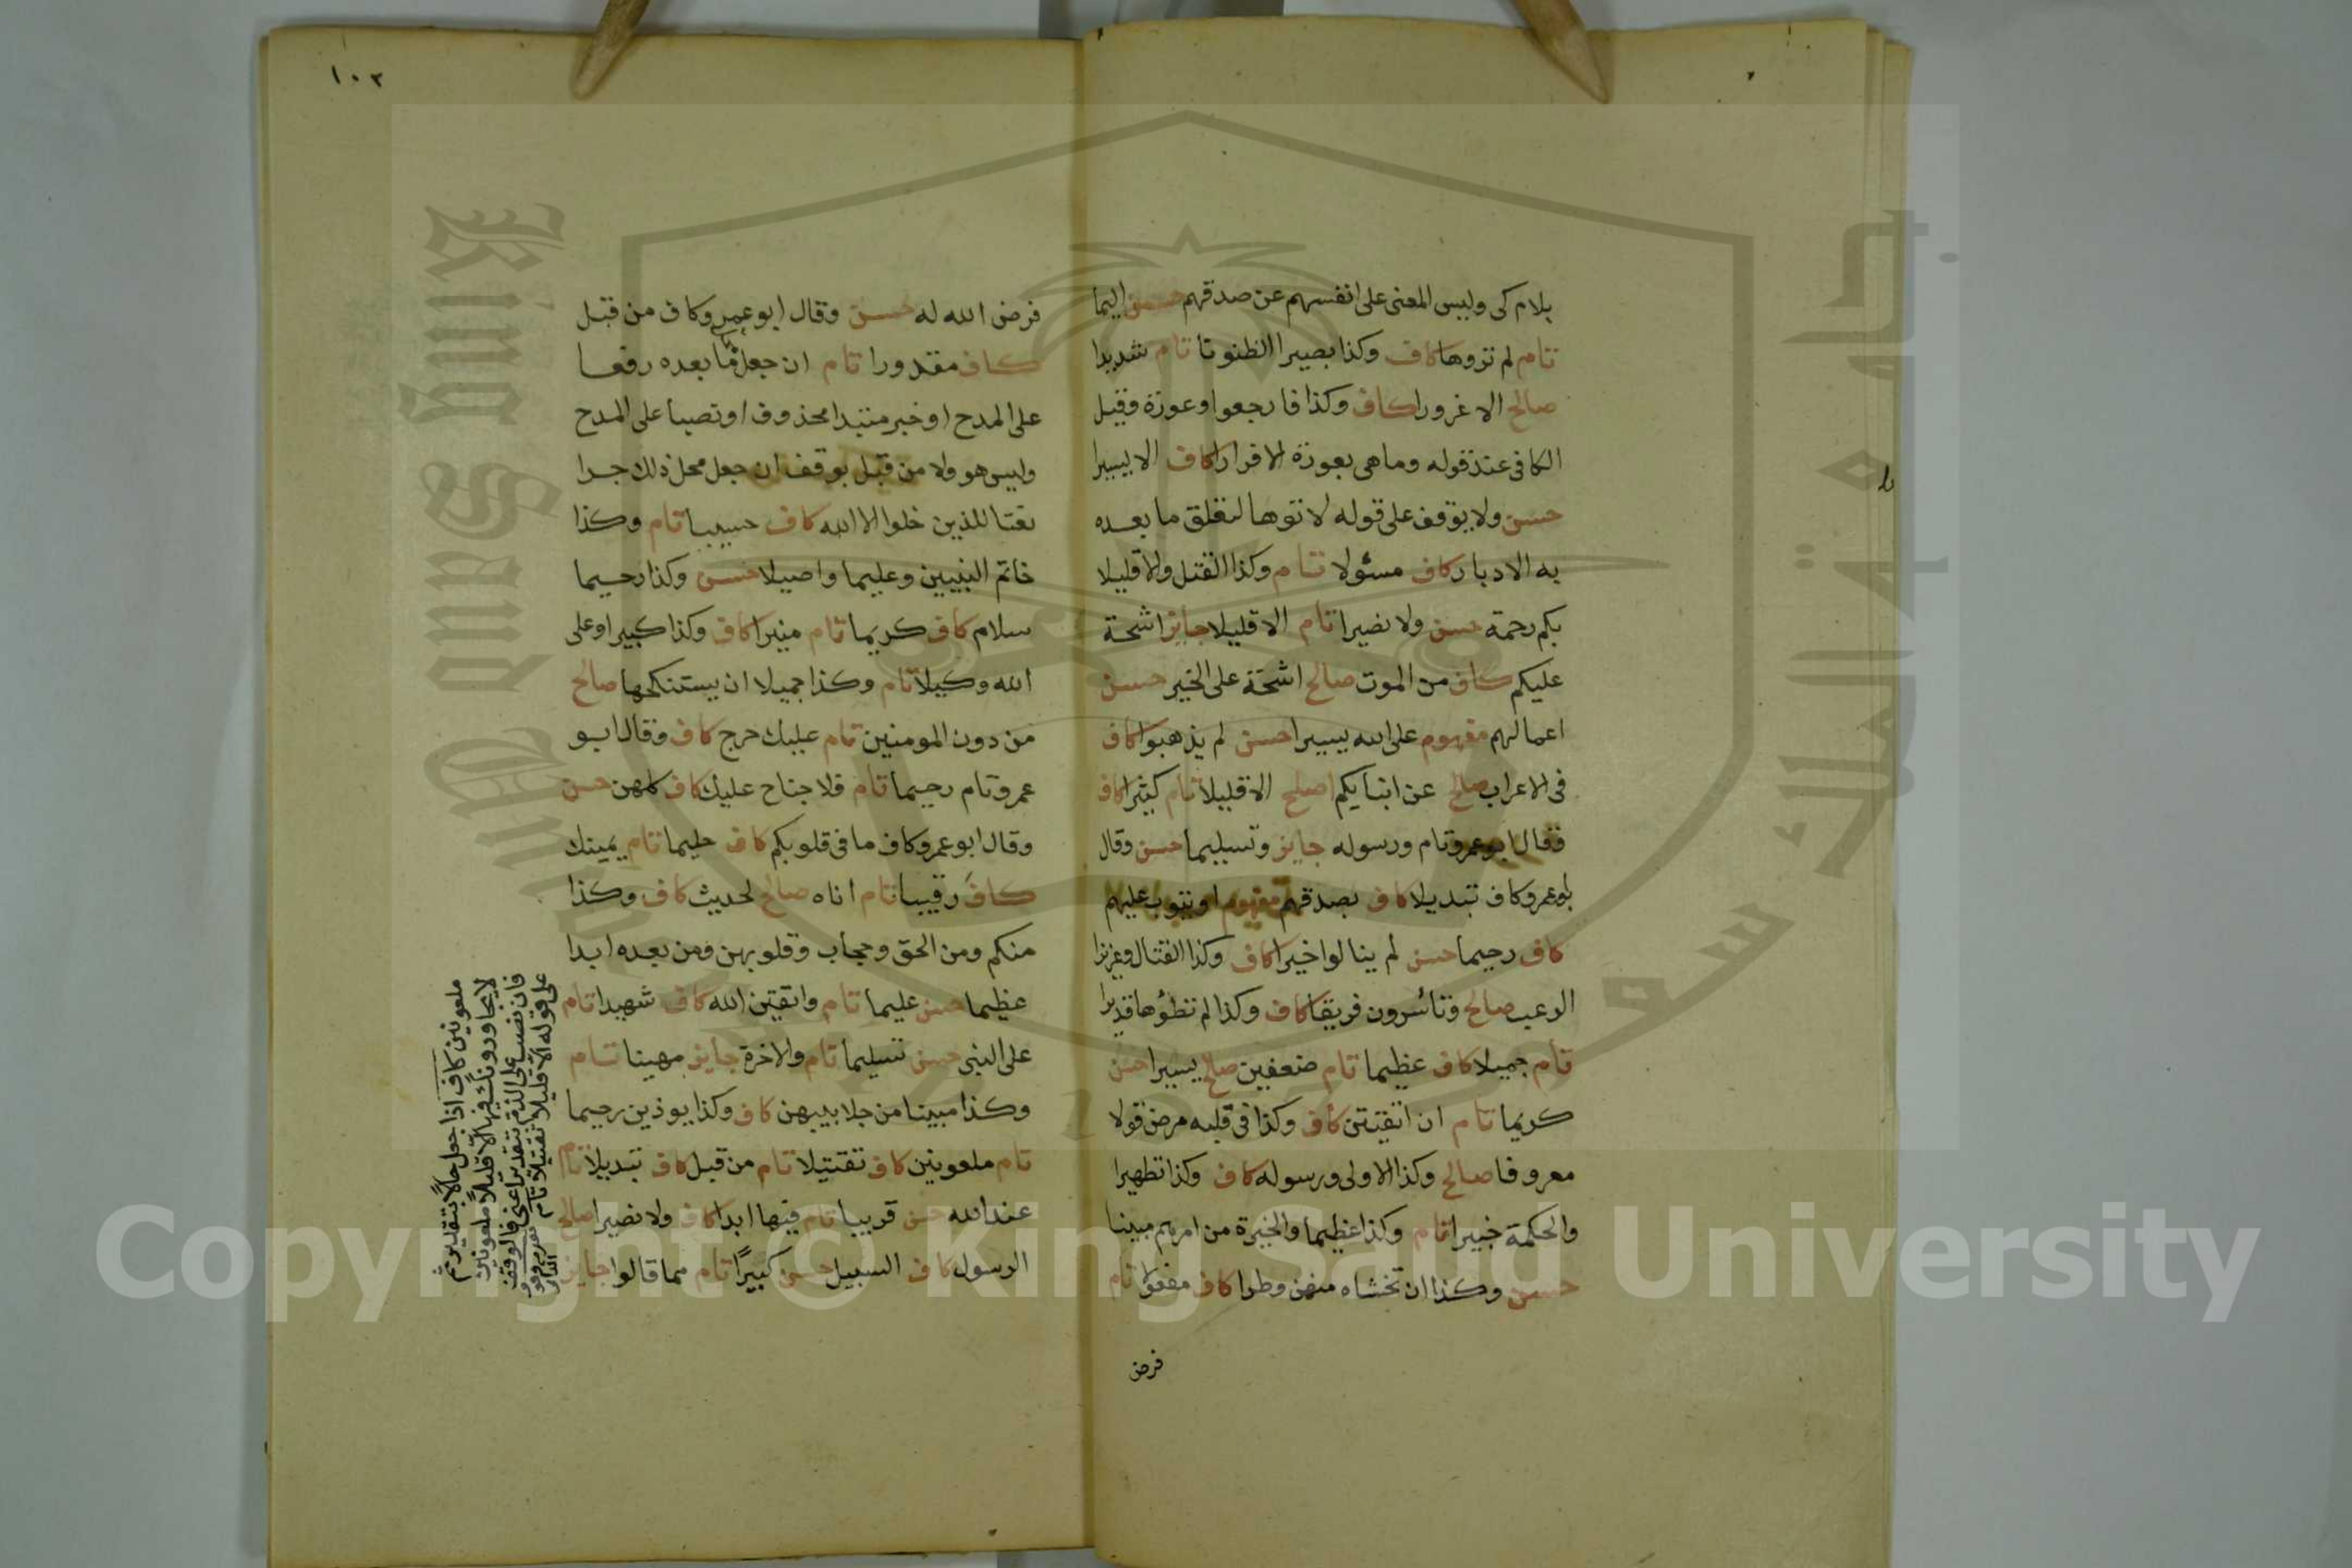 بلام كى وليس المعنى على انفسهم عن صدقهم حسن اليما
تام لم تروها كاف وكذا بصيرا الظنونا تام شديدا
صالح الا غرورا كاف وكذا فارجعوا وعورة وقيل
الكافى عند قوله وما هى بعورة الا فرارا كاف الا يسيرا
حسن ولا يوقف على قوله لاتوها لتعلق ما بعده
به الادبار كاف مسئولا تام وكذا القتل والا قليلا
بكم رحمة حسن ولا نصيرا تام الا قليلا جايز اشحة
عليكم كاف من الموت صالح اشحة على الخير حسن
اعمالهم مفهوم على الله يسيرا حسن لم يذهبوا كاف
فى الاعراب صالح عن انبايكم اصلح الا قليلا تام كثيرا كاف
وقال ابو عمرو تام ورسوله جايز وتسليما حسن وقال
ابو عمرو كاف تبديلا كاف بصدقهم مفهوم او يتوب عليهم
كاف رحيما حسن لم ينالوا خيرا كاف وكذا القتال وعزيزا
الرعب صالح وتأسرون فريقا كاف وكذا لم تطؤها قديرا
تام جميلا كاف عظيما تام ضعفين صالح يسيرا حسن
كريما تام ان اتقيتن كاف وكذا فى قلبه مرض قولا
معروفا صالح وكذا الاولى ورسوله كاف وكذا تطهيرا
والحكمة خبيرا تام وكذا عظيما والخيرة من امرهم مبينا
حسن وكذا ان تخشاه منهن وطرا كاف مفعولا تام
فرض
١٠٢
فرض الله له حسن وقال ابو عمرو كاف من قبل
كاف مقدورا تام ان جعل ما بعده رفعا
على المدح او خبر مبتدا محذوف او نصبا على المدح
وليس هو ولا من قبل بوقف ان جعل محل ذلك جرا
نعتا للذين خلوا الا الله كاف حسيبا تام وكذا
خاتم النبيين وعليما واصيلا حسن وكذا رحيما
سلام كاف كريما تام منيرا كاف وكذا كبيرا وعلى
الله وكيلا تام وكذا جميلا ان يستنكحها صالح
من دون المومنين تام عليك حرج كاف وقال ابو
عمرو تام رحيما تام فلا جناح عليك كاف كلهن حسن
وقال ابو عمرو كاف ما فى قلوبكم كاف حليما تام يمينك
كاف رقيبا تام اناه صالح لحديث كاف وكذا
منكم ومن الحق وحجاب وقلوبهن ومن بعده ابدا
عظيما حسن عليما تام واتقين الله كاف شهيدا تام
على النبى حسن تسليما تام والاخرة جايز مهينا تام
وكذا مبينا من جلابيبهن كاف وكذا يوذين رحيما
تام ملعونين كاف تقتيلا تام من قبل كاف تبديلا تام
عند الله حسن قريبا تام فيها ابدا كاف ولا نصيرا صالح
الرسول كاف السبيل حسن كبيرًا تام مما قالوا جايز
ملعونين كاف اذا جعل حالا بتقدير ثم
لا يجاورونك فيها الا قليلا ملعونين
فان نصب على الذم بتقدير اعنى فالوقف
على قوله الا قليلا تقتيلا تام
Copyright © King Saud University
King Saud University
جامعة الملك سعود
1957